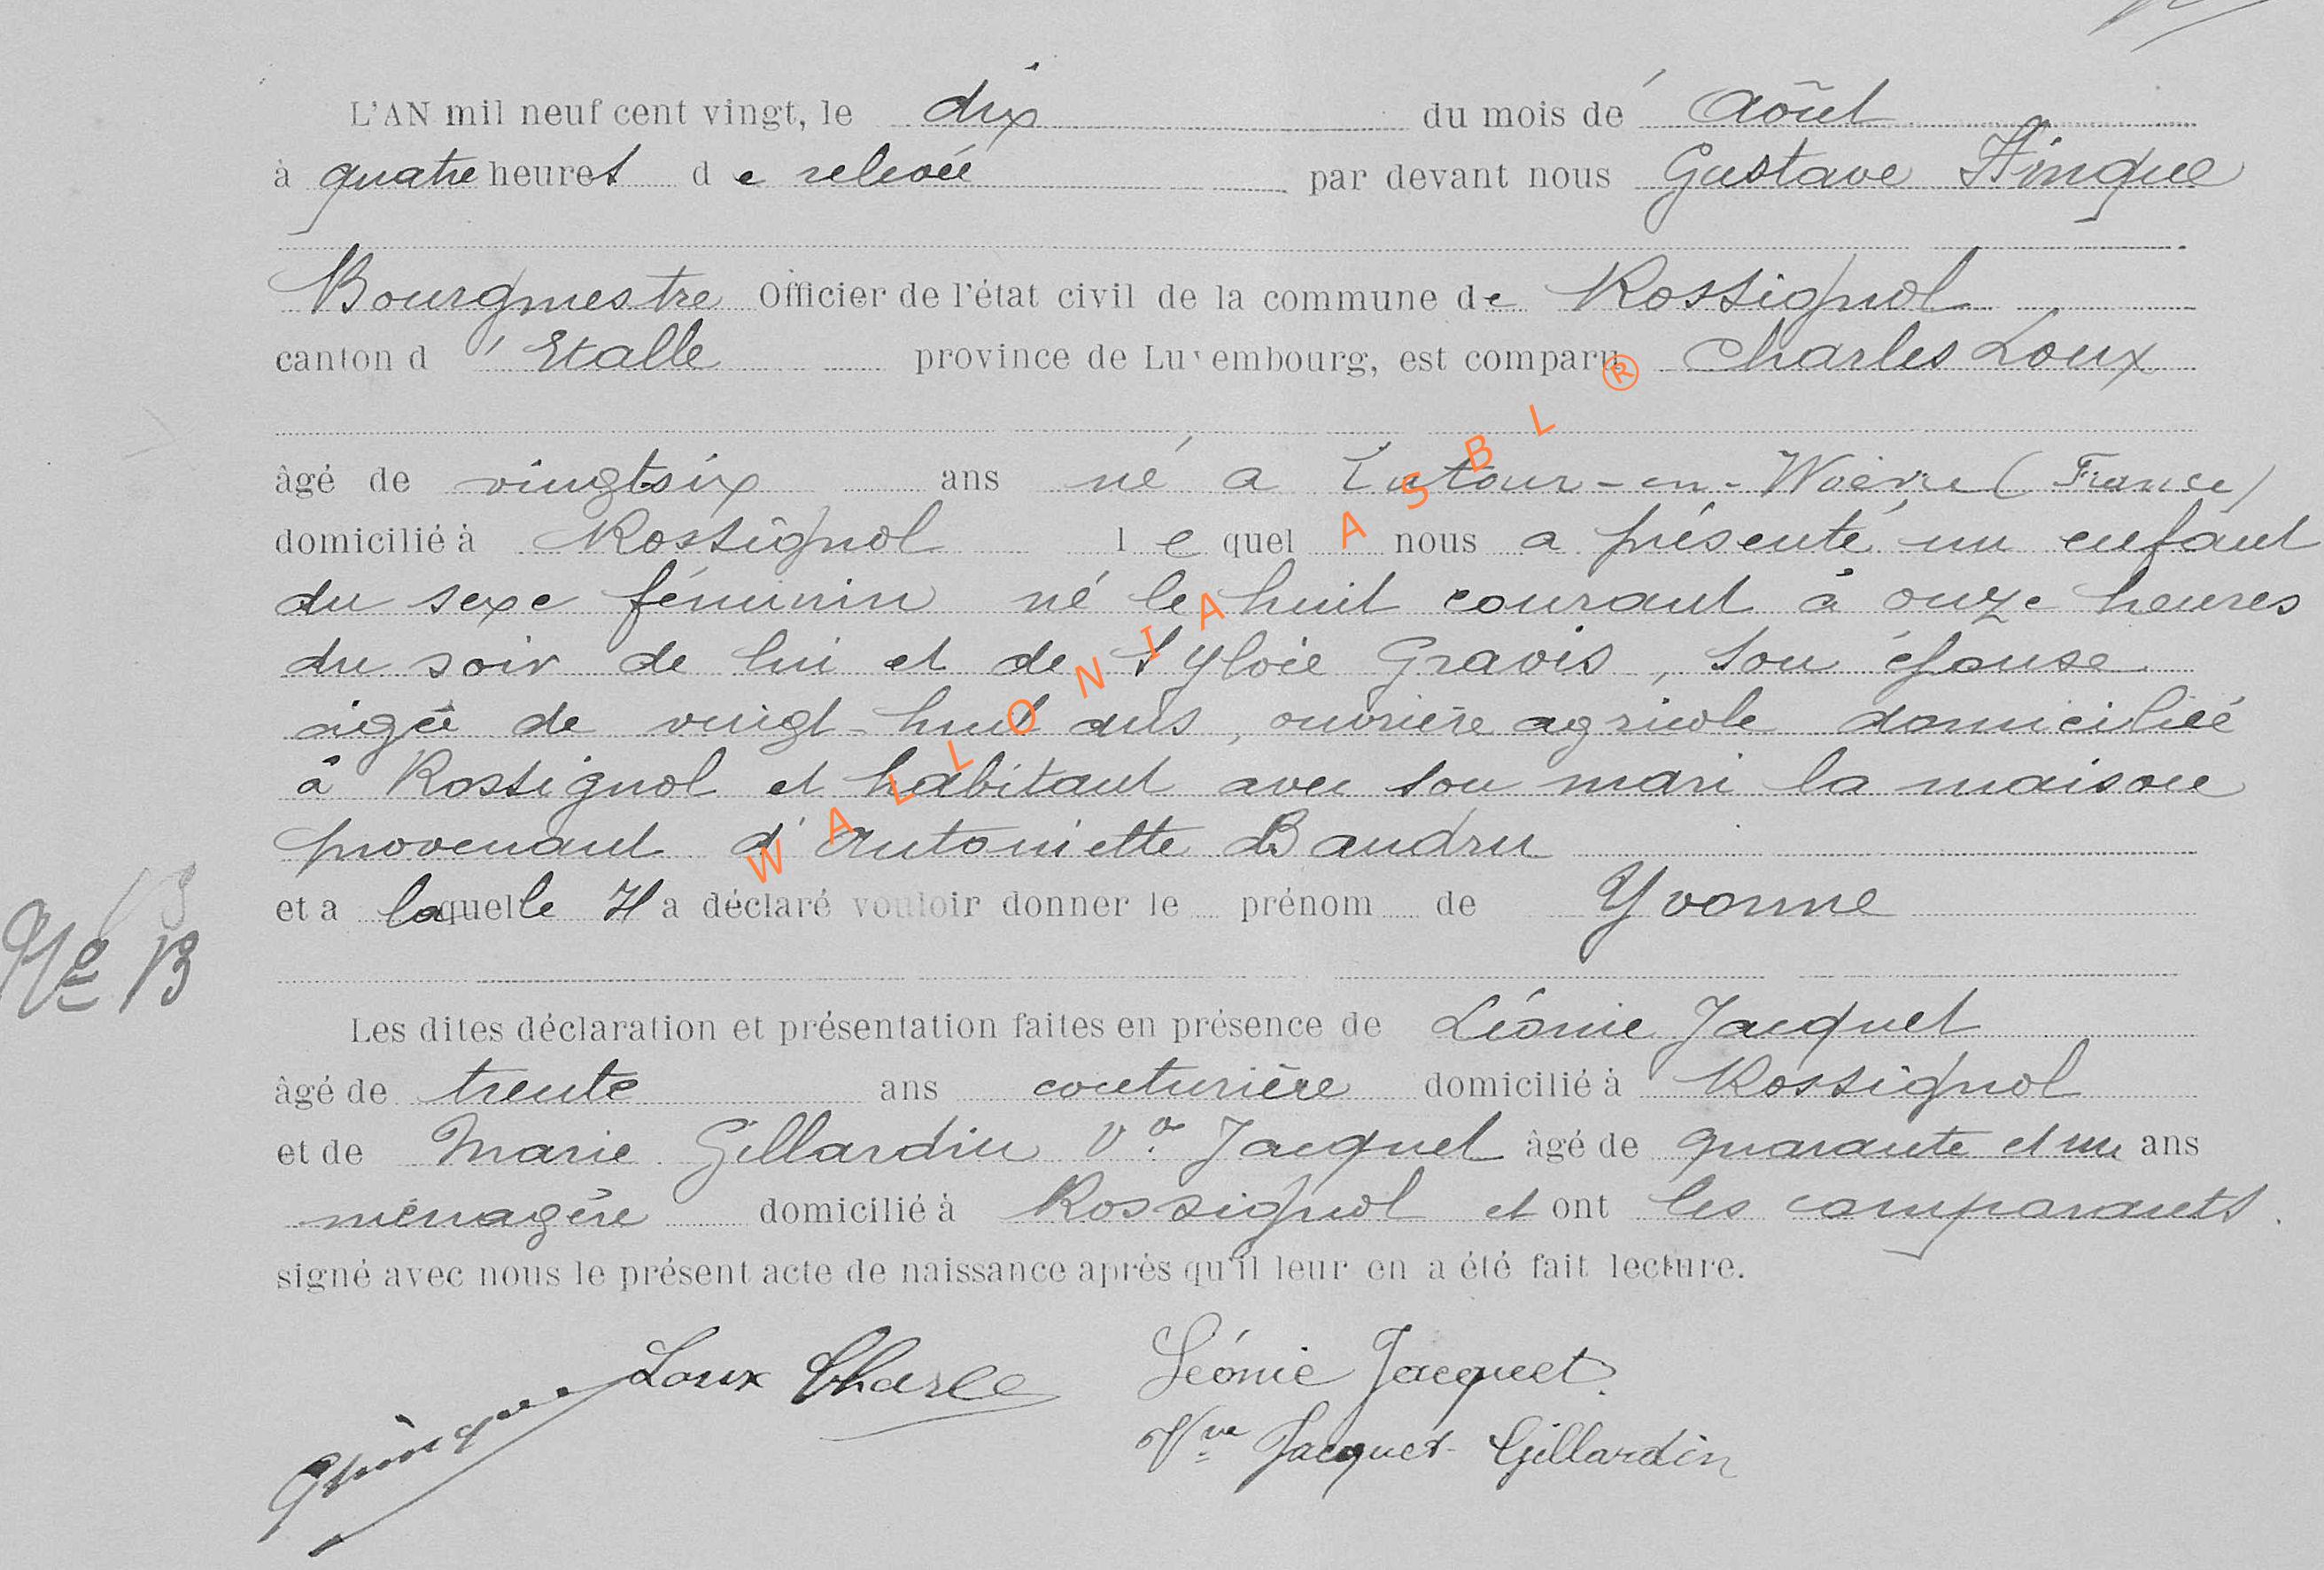 L'AN mil neuf cent vingt, le dix du mois de Août
à quatre heures de relevée par devant nous Gustave Hinque
Bourgmestre Officier de l'état civil de la commune de Rossignol
canton d'Etalle province de Luxembourg, est comparu Charles Loux
âgé de vingtsix ans né a Latour-en-Woëvre (France)
domicilié à Rossignol lequel nous a présenté un enfant
du sexe féminin né le huit courant à onze heures
du soir de lui et de Sylvie Gravis, son épouse
agée de vingt-huit ans, ouvrière agricole domiciliée
à Rossignol et habitant avec son mari la maison
provenant d'Antoinette Baudru
et a laquelle Il a déclaré vouloir donner le prénom de Yvonne
13
No 13
Les dites déclaration et présentation faites en présence de Léonie Jacquet
âgé de trente ans couturière domicilié à Rossignol
et de Marie Gillardin Ve Jacquet âgé de quarante et un ans
ménagère domicilié à Rossignol et ont les comparants.
signé avec nous le présent acte de naissance après qu'il leur en a été fait lecture.
Loux Charle Léonie Jacquet.
Vve Jacquet-Gillardin
WALLONIA ASBL ®